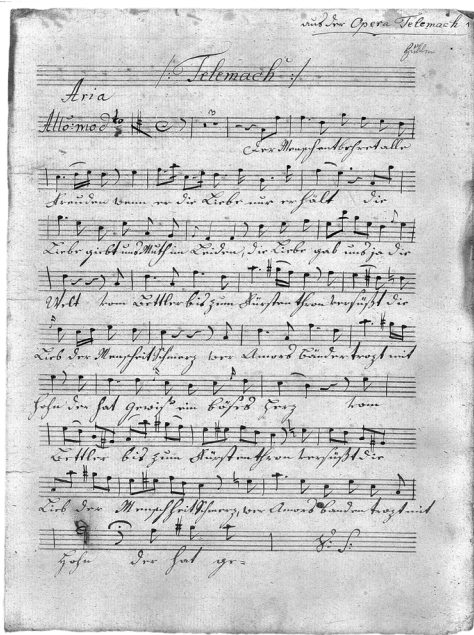 aus der Opera Telemach
/: Telemach :/
Aria
Allo: mod:to
Der Mensch entbehret alle
Freuden wenn er die Liebe nur erhält die
Liebe giebt uns Muth im Leiden, die Liebe gab uns ja die
Welt vom Bettler bis zum Fürstenthron versüßt die
Lieb der Menschheit Schmerz wer Amors bänder trozt mit
Hohn der hat gewiß ein böses Herz vom
Bettler bis zum Fürstenthron versüßt die
Lieb der Menschheit Schmerz, wer Amors banden trozt mit
Hohn der hat ge=
V: S: